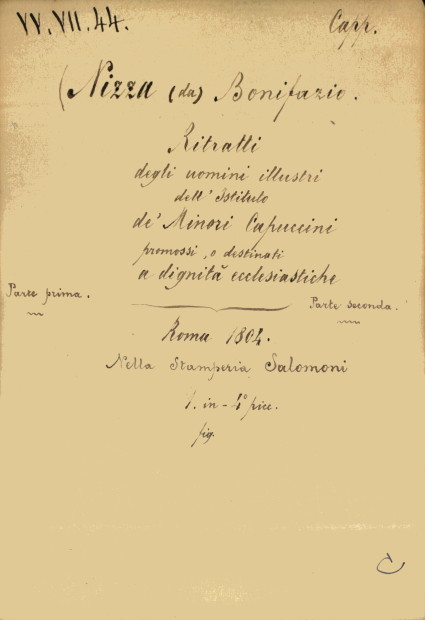 VV.VII.44.
Capp.
(Nizza (da) Bonifazio.
Ritratti
degli uomini illustri
dell' Istituto
de' Minori Capuccini
promossi, o destinati
a dignità ecclesiastiche
Parte prima.
Parte seconda.
Roma 1804.
Nella Stamperia Salomoni
1. in-4° picc.
fig.
C